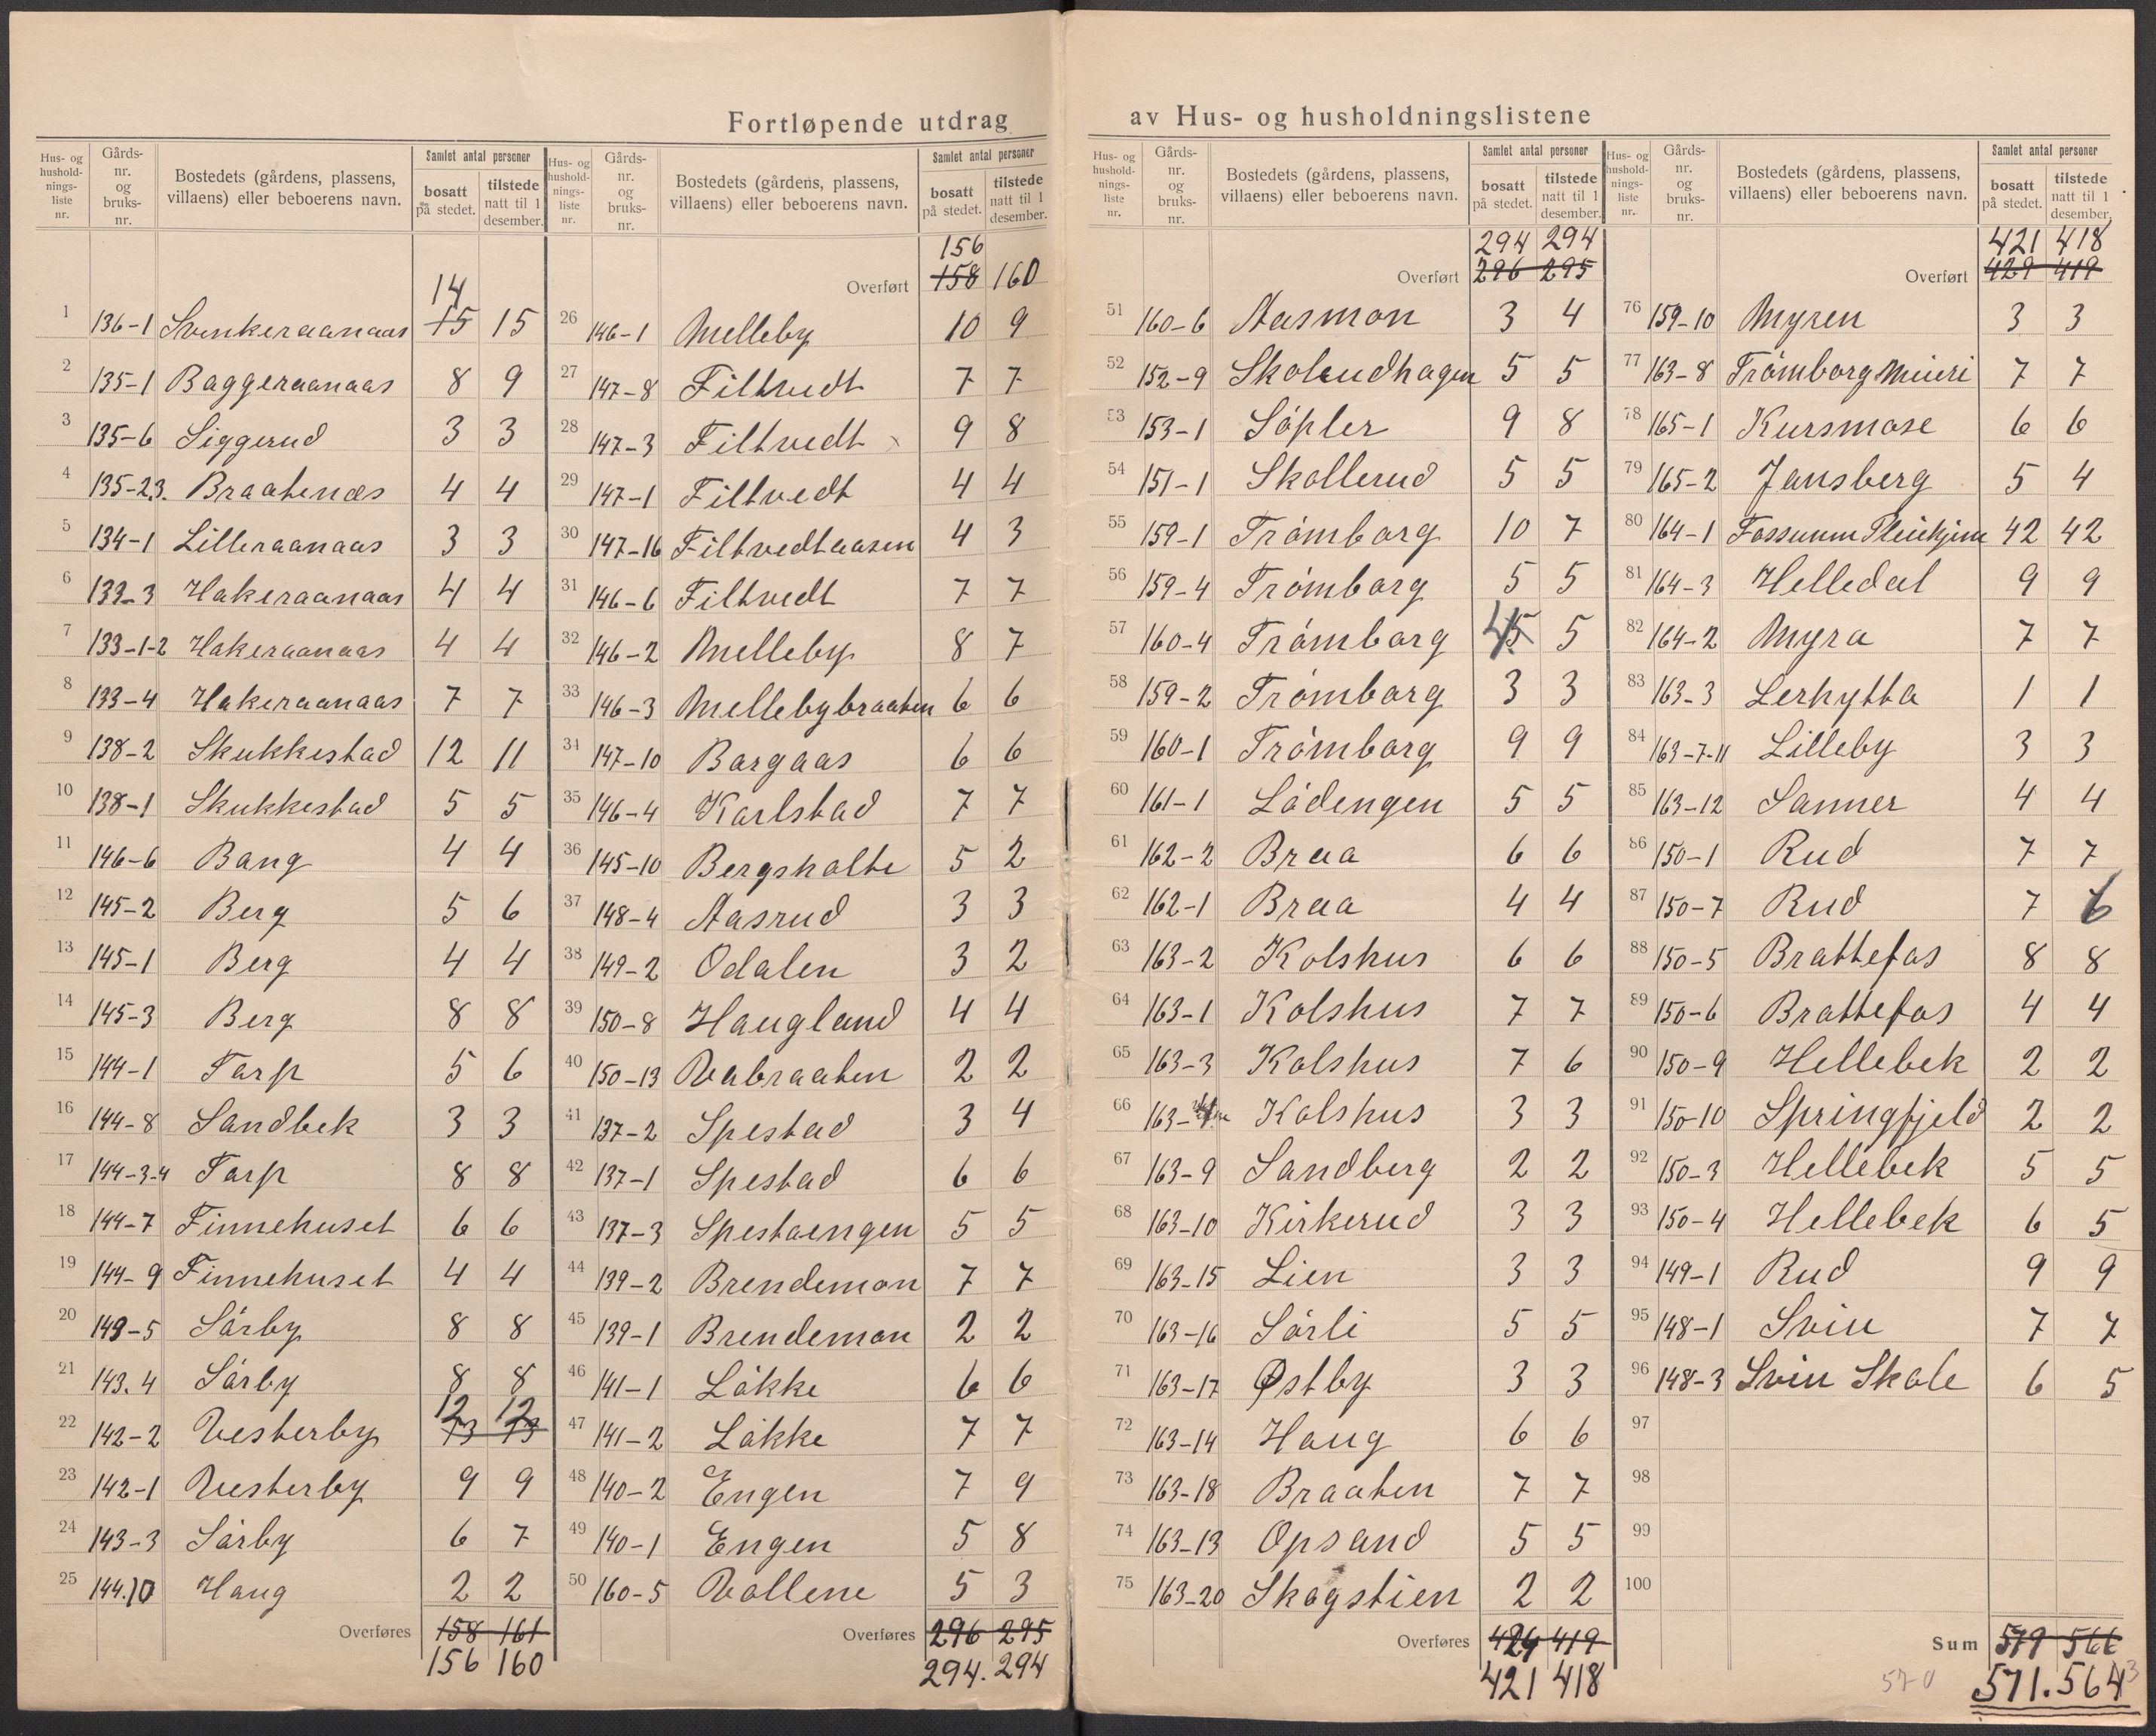 Fortløpende utdrag av Hus- og husholdningslistene
Hus- og hushold- nings- liste nr. Gårds- nr. og bruks- nr. Bostedets (gårdens, plassens, villaens) eller beboerens navn. Samlet antal personer bosatt på stedet. tilstede natt til 1 desember.
14
1 136-1 Svenkeraanaas 15 15
2 135-1 Baggeraanaas 8 9
3 135-6 Siggerud 3 3
4 135-23. Braatenæs 4 4
5 134-1 Lilleraanaas 3 3
6 133-3 Hakeraanaas 4 4
7 133-1-2 Hakeraanaas 4 4
8 133-4 Hakeraanaas 7 7
9 138-2 Skukkestad 12 11
10 138-1 Skukkestad 5 5
11 146-6 Bang 4 4
12 145-2 Berg 5 6
13 145-1 Berg 4 4
14 145-3 Berg 8 8
15 144-1 Tarp 5 6
16 144-8 Sandbek 3 3
17 144-3-4 Tarp 8 8
18 144-7 Finnehuset 6 6
19 144-9 Finnehuset 4 4
20 143-5 Sórby 8 8
21 143.4 Sórby 8 8
12 12
22 142-2 Vesterby 13 13
23 142-1 Vesterby 9 9
24 143-3 Sórby 6 7
25 144.10 Haug 2 2
Overføres 158 161
156 160
Hus- og hushold- nings- liste nr. Gårds- nr. og bruks- nr. Bostedets (gårdens, plassens, villaens) eller beboerens navn. Samlet antal personer bosatt på stedet. tilstede natt til 1 desember.
156
Overført 158 160
26 146-1 Melleby 10 9
27 147-8 Filtvedt 7 7
28 147-3 Filtvedt x 9 8
29 147-1 Filtvedt 4 4
30 147-16 Filtvedtaasen 4 3
31 146-6 Filtvedt 7 7
32 146-2 Melleby 8 7
33 146-3 Mellebybraaten 6 6
34 147-10 Borgaas 6 6
35 146-4 Karlstad 7 7
36 145-10 Bergsholte 5 2
37 148-4 Aasrud 3 3
38 149-2 Odalen 3 2
39 150-8 Haugland 4 4
40 150-13 Vabraaten 2 2
41 137-2 Spestad 3 4
42 137-1 Spestad 6 6
43 137-3 Spestaengen 5 5
44 139-2 Brendemon 7 7
45 139-1 Brendemon 2 2
46 141-1 Lókke 6 6
47 141-2 Lókke 7 7
48 140-2 Engen 7 9
49 140-1 Engen 5 8
50 160-5 Vollene 5 3
Overføres 296 295
294. 294
Hus- og hushold- nings- liste nr. Gårds- nr. og bruks- nr. Bostedets (gårdens, plassens, villaens) eller beboerens navn. Samlet antal personer bosatt på stedet. tilstede natt til 1 desember.
294 294
Overført 296 295
51 160-6 Aasmon 3 4
52 152-9 Skolludhagen 5 5
53 153-1 Sópler 9 8
54 151-1 Skollerud 5 5
55 159-1 Trómborg 10 7
56 159-4 Trómborg 5 5
57 160-4 Trómborg 45 5
58 159-2 Trómborg 3 3
59 160-1 Trómborg 9 9
60 161-1 Lódengen 5 5
61 162-2 Braa 6 6
62 162-1 Braa 4 4
63 163-2 Kolshus 6 6
64 163-1 Kolshus 7 7
65 163-3 Kolshus 7 6
66 163- Kolshus 3 3
67 163-9 Sandberg 2 2
68 163-10 Kirkerud 3 3
69 163-15 Lien 3 3
70 163-16 Sórli 5 5
71 163-17 Østby 3 3
72 163-14 Haug 6 6
73 163-18 Braaten 7 7
74 163-13 Opsand 5 5
75 163-20 Skogstien 2 2
Overføres 424 419
421 418
Hus- og hushold- nings- liste nr. Gårds- nr. og bruks- nr. Bostedets (gårdens, plassens, villaens) eller beboerens navn. Samlet antal personer bosatt på stedet. tilstede natt til 1 desember.
421 418
Overført 429 419
76 159-10 Myren 3 3
77 163-8 Trómborg Meieri 7 7
78 165-1 Kursmose 6 6
79 165-2 Jansberg 5 4
80 164-1 Fossum Pleiehjem 42 42
81 164-3 Helledal 9 9
82 164-2 Myra 7 7
83 163-3 Lerhytta 1 1
84 163-7-11 Lilleby 3 3
85 163-12 Sanner 4 4
86 150-1 Rud 7 7
87 150-7 Rud 7 6
88 150-5 Brattefos 8 8
89 150-6 Brattefos 4 4
90 150-9 Hellebek 2 2
91 150-10 Springfjeld 2 2
92 150-3 Hellebek 5 5
93 150-4 Hellebek 6 5
94 149-1 Rud 9 9
95 148-1 Svin 7 7
96 148-3 Svin Skole 6 5
97
98
99
100
Sum 579 566
570 571. 564 3